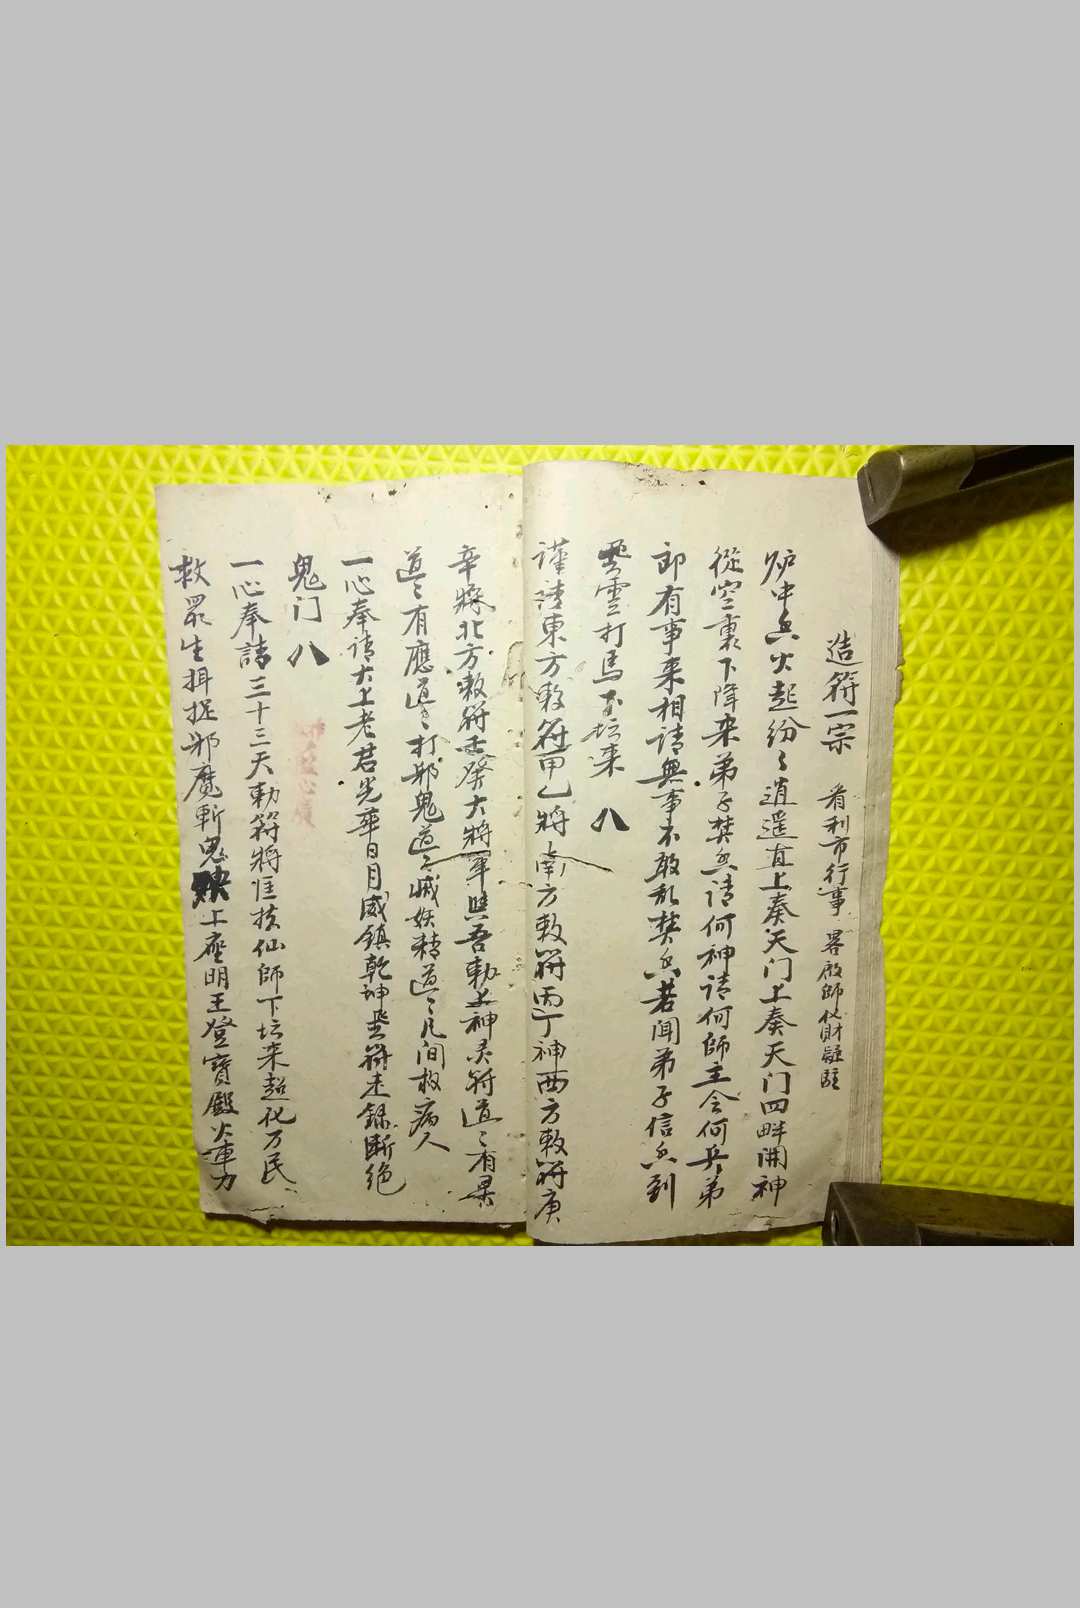 造符一宗 看利市行事 畧啟師
炉中香火起紛々逍遥直上奏天门上奏天门四畔開神
從空裏下降来弟子焚香请何神请何師主会何兵弟
郎有事来相请無事不敢乱焚香若闻弟子信香到
雲打馬下坛来 八
謹请東方敕符甲乙將南方敕符丙丁神西方敕符庚
辛 北方敕符壬癸大將軍與吾勅 神灵符道々有灵
道々有應道々打邪鬼道々滅妖精道々凡间救病人
一心奉请太上老君光華日月威鎮乾坤 符走録断绝
鬼门 八
一心奉請三十三天勅符將 仙師下坛来超化万民
救眾生 捉邪魔斬鬼 上座明王登寶殿火車力